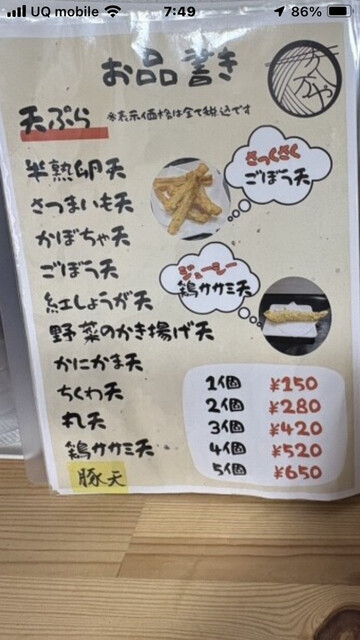 UQ mobile 7:49 86%
お品書き
天ぷら ※表示価格は全て税込です
半熟卵天
さつまいも天
かぼちゃ天
ごぼう天
紅しょうが天
野菜のかき揚げ天
かにかま天
ちくわ天
丸天
鶏ササミ天
豚天
さっくさく
ごぼう天
ジューシー
鶏ササミ天
1個 ¥150
2個 ¥280
3個 ¥420
4個 ¥520
5個 ¥650